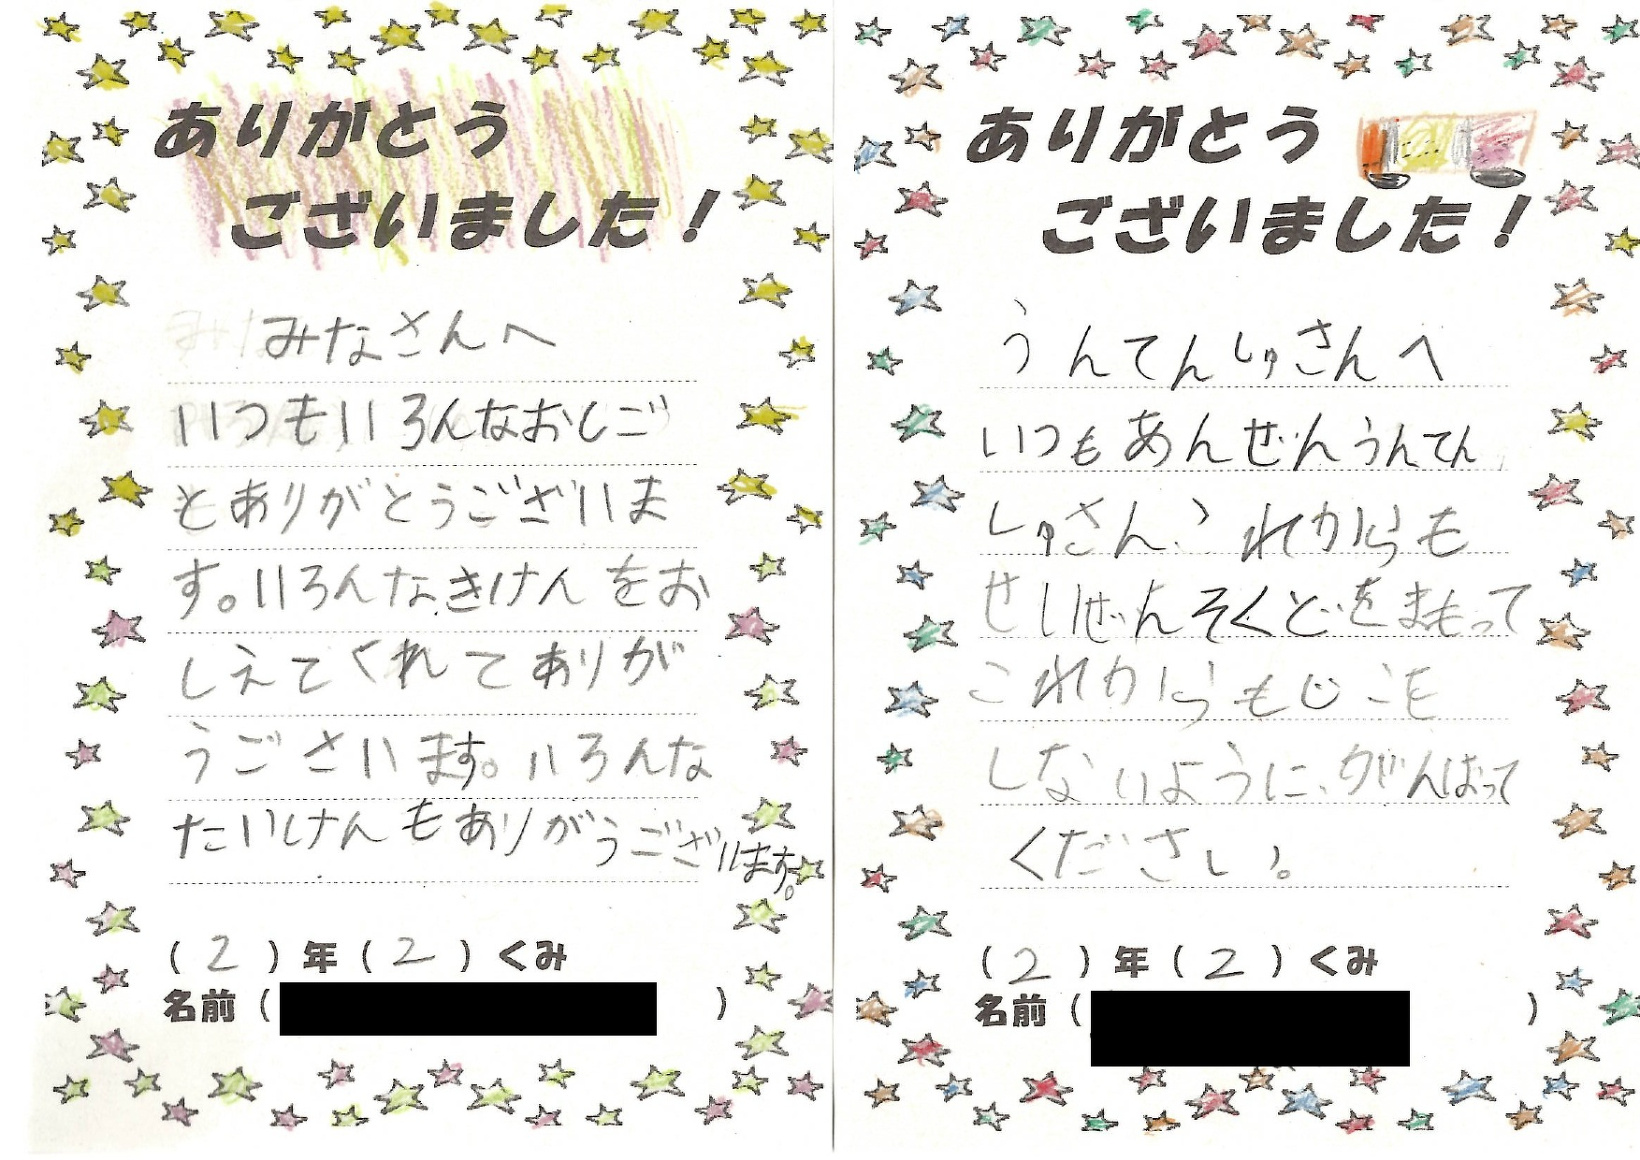 ありがとう
ございました！
みなさんへ
いつもいろんなおしご
とありがとうございま
す。いろんなきけんをお
しえてくれてありが
うごさいます。いろんな
たいけんもありがうございます。
(2)年(2)くみ
名前( )
ありがとう
ございました！
うんてんしゅさんへ
いつもあんぜんうんてん
しゅさん、これからも
せいぜんそくどをまもって
これからもじこを
しないように、がんばって
ください。
(2)年(2)くみ
名前( )